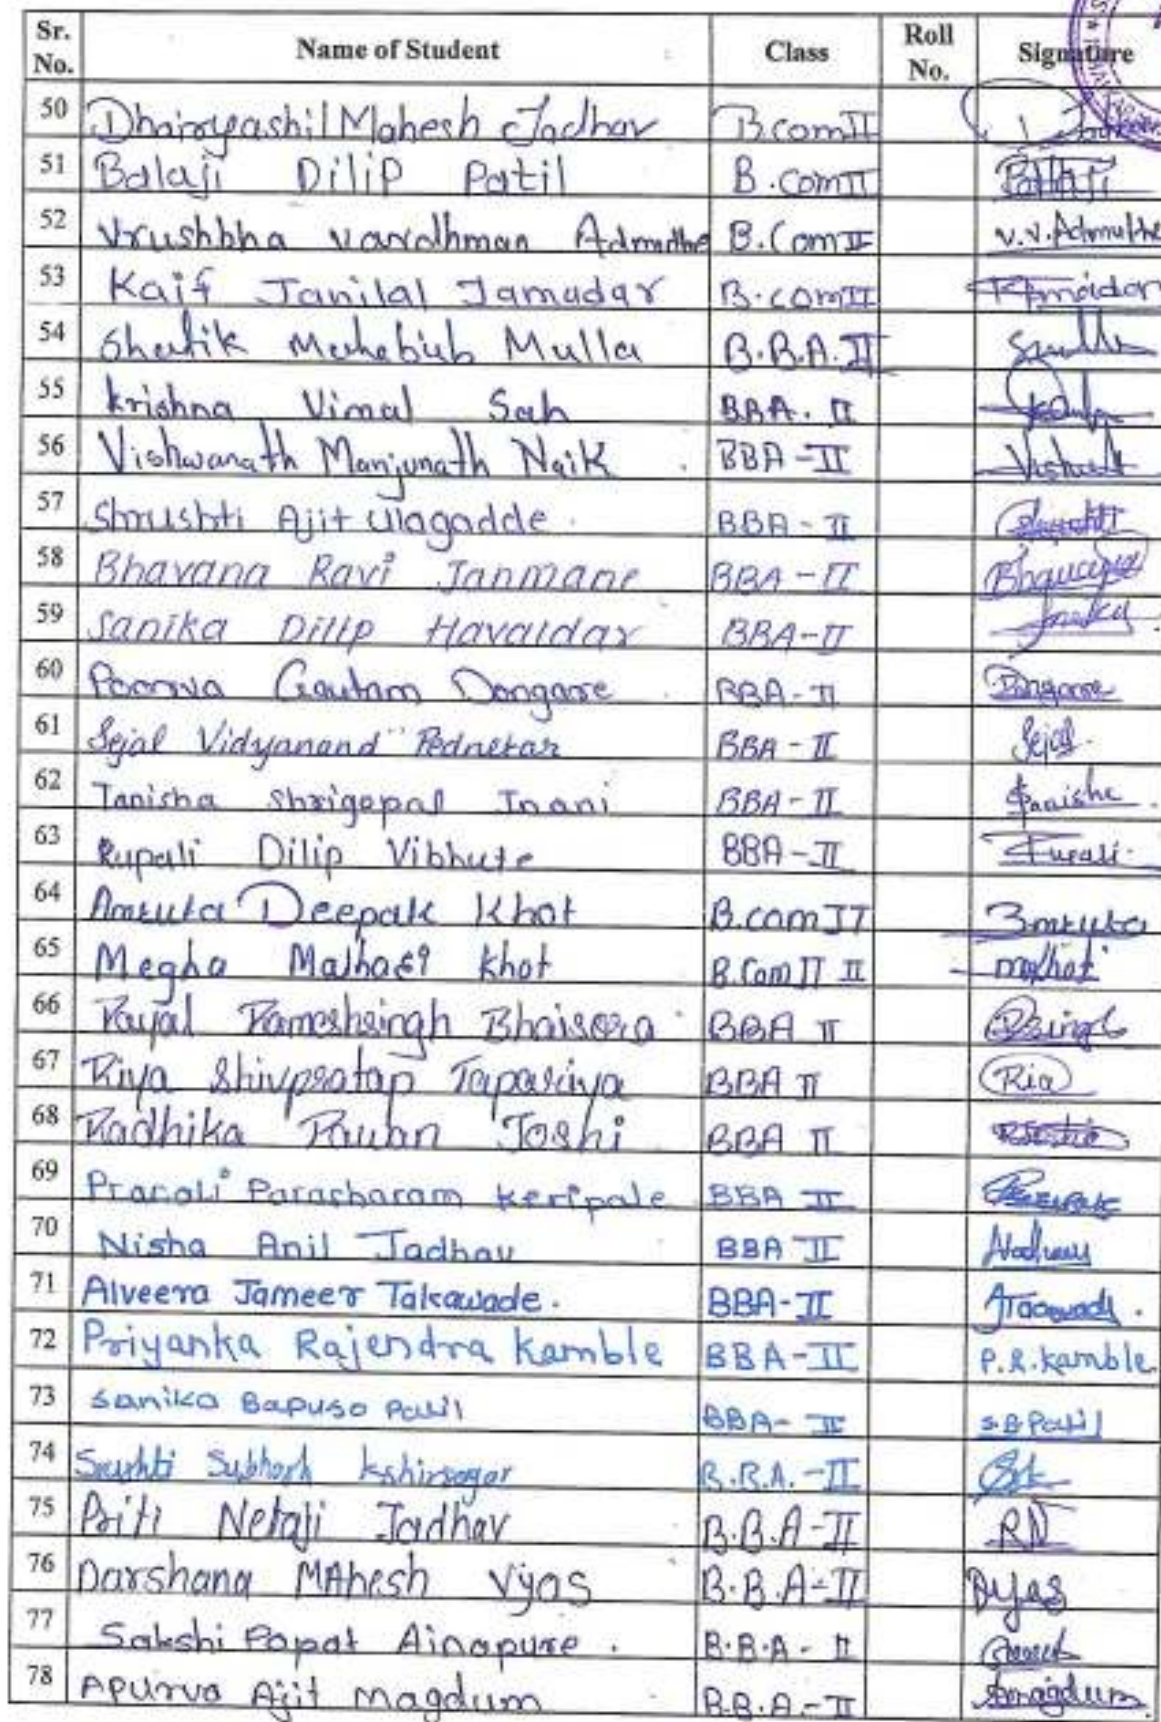 Sr. No. Name of Student Class Roll No. Signature
50 Dhairyashil Mahesh Jadhav B.com II
51 Balaji Dilip Patil B.com II Balaji
52 Vrushbha vardhman Admuthe B.Com II v.v.Admuthe
53 Kaif Janilal Jamadar B.com II Jamadar
54 Mehebub Mulla B.B.A. II
55 krishna Vimal Sah BBA. II
56 Vishwanath Manjunath Naik BBA - II
57 Shrushti Ajit Ulagadde. BBA - II Shrushti
58 Bhavana Ravi Janmane BBA - II Bhavana
59 Sanika Dilip Havaldar BBA - II
60 Poorva Gautam Dongare BBA - II Dongare
61 Sejal Vidyanand Pednekar BBA - II Sejal.
62 Tanisha Shrigopal Inani BBA - II Tanisha
63 Rupali Dilip Vibhute BBA - II Rupali
64 Amruta Deepak Khot B.com II Amruta
65 Megha Malhari khot B.Com II II mkhot
66 Payal Rameshsingh Bhaisora BBA II
67 Riya Shivpratap Tapariya BBA II Ria
68 Radhika Pawan Joshi BBA II
69 Pranali Parasharam Keripale BBA II
70 Nisha Anil Jadhav BBA II
71 Alveera Jameer Takawade. BBA - II
72 Priyanka Rajendra Kamble BBA - II P.R.Kamble
73 Sanika Bapuso Patil BBA - II S B Patil
74 Srushti Subhash kshirsagar B.B.A. - II
75 Priti Netaji Jadhav B.B.A - II
76 Darshana MAhesh Vyas B.B.A - II Dyas
77 Sakshi Popat Ainapure. B.B.A - II
78 Apurva Ajit Magdum B.B.A. - II Amagdum